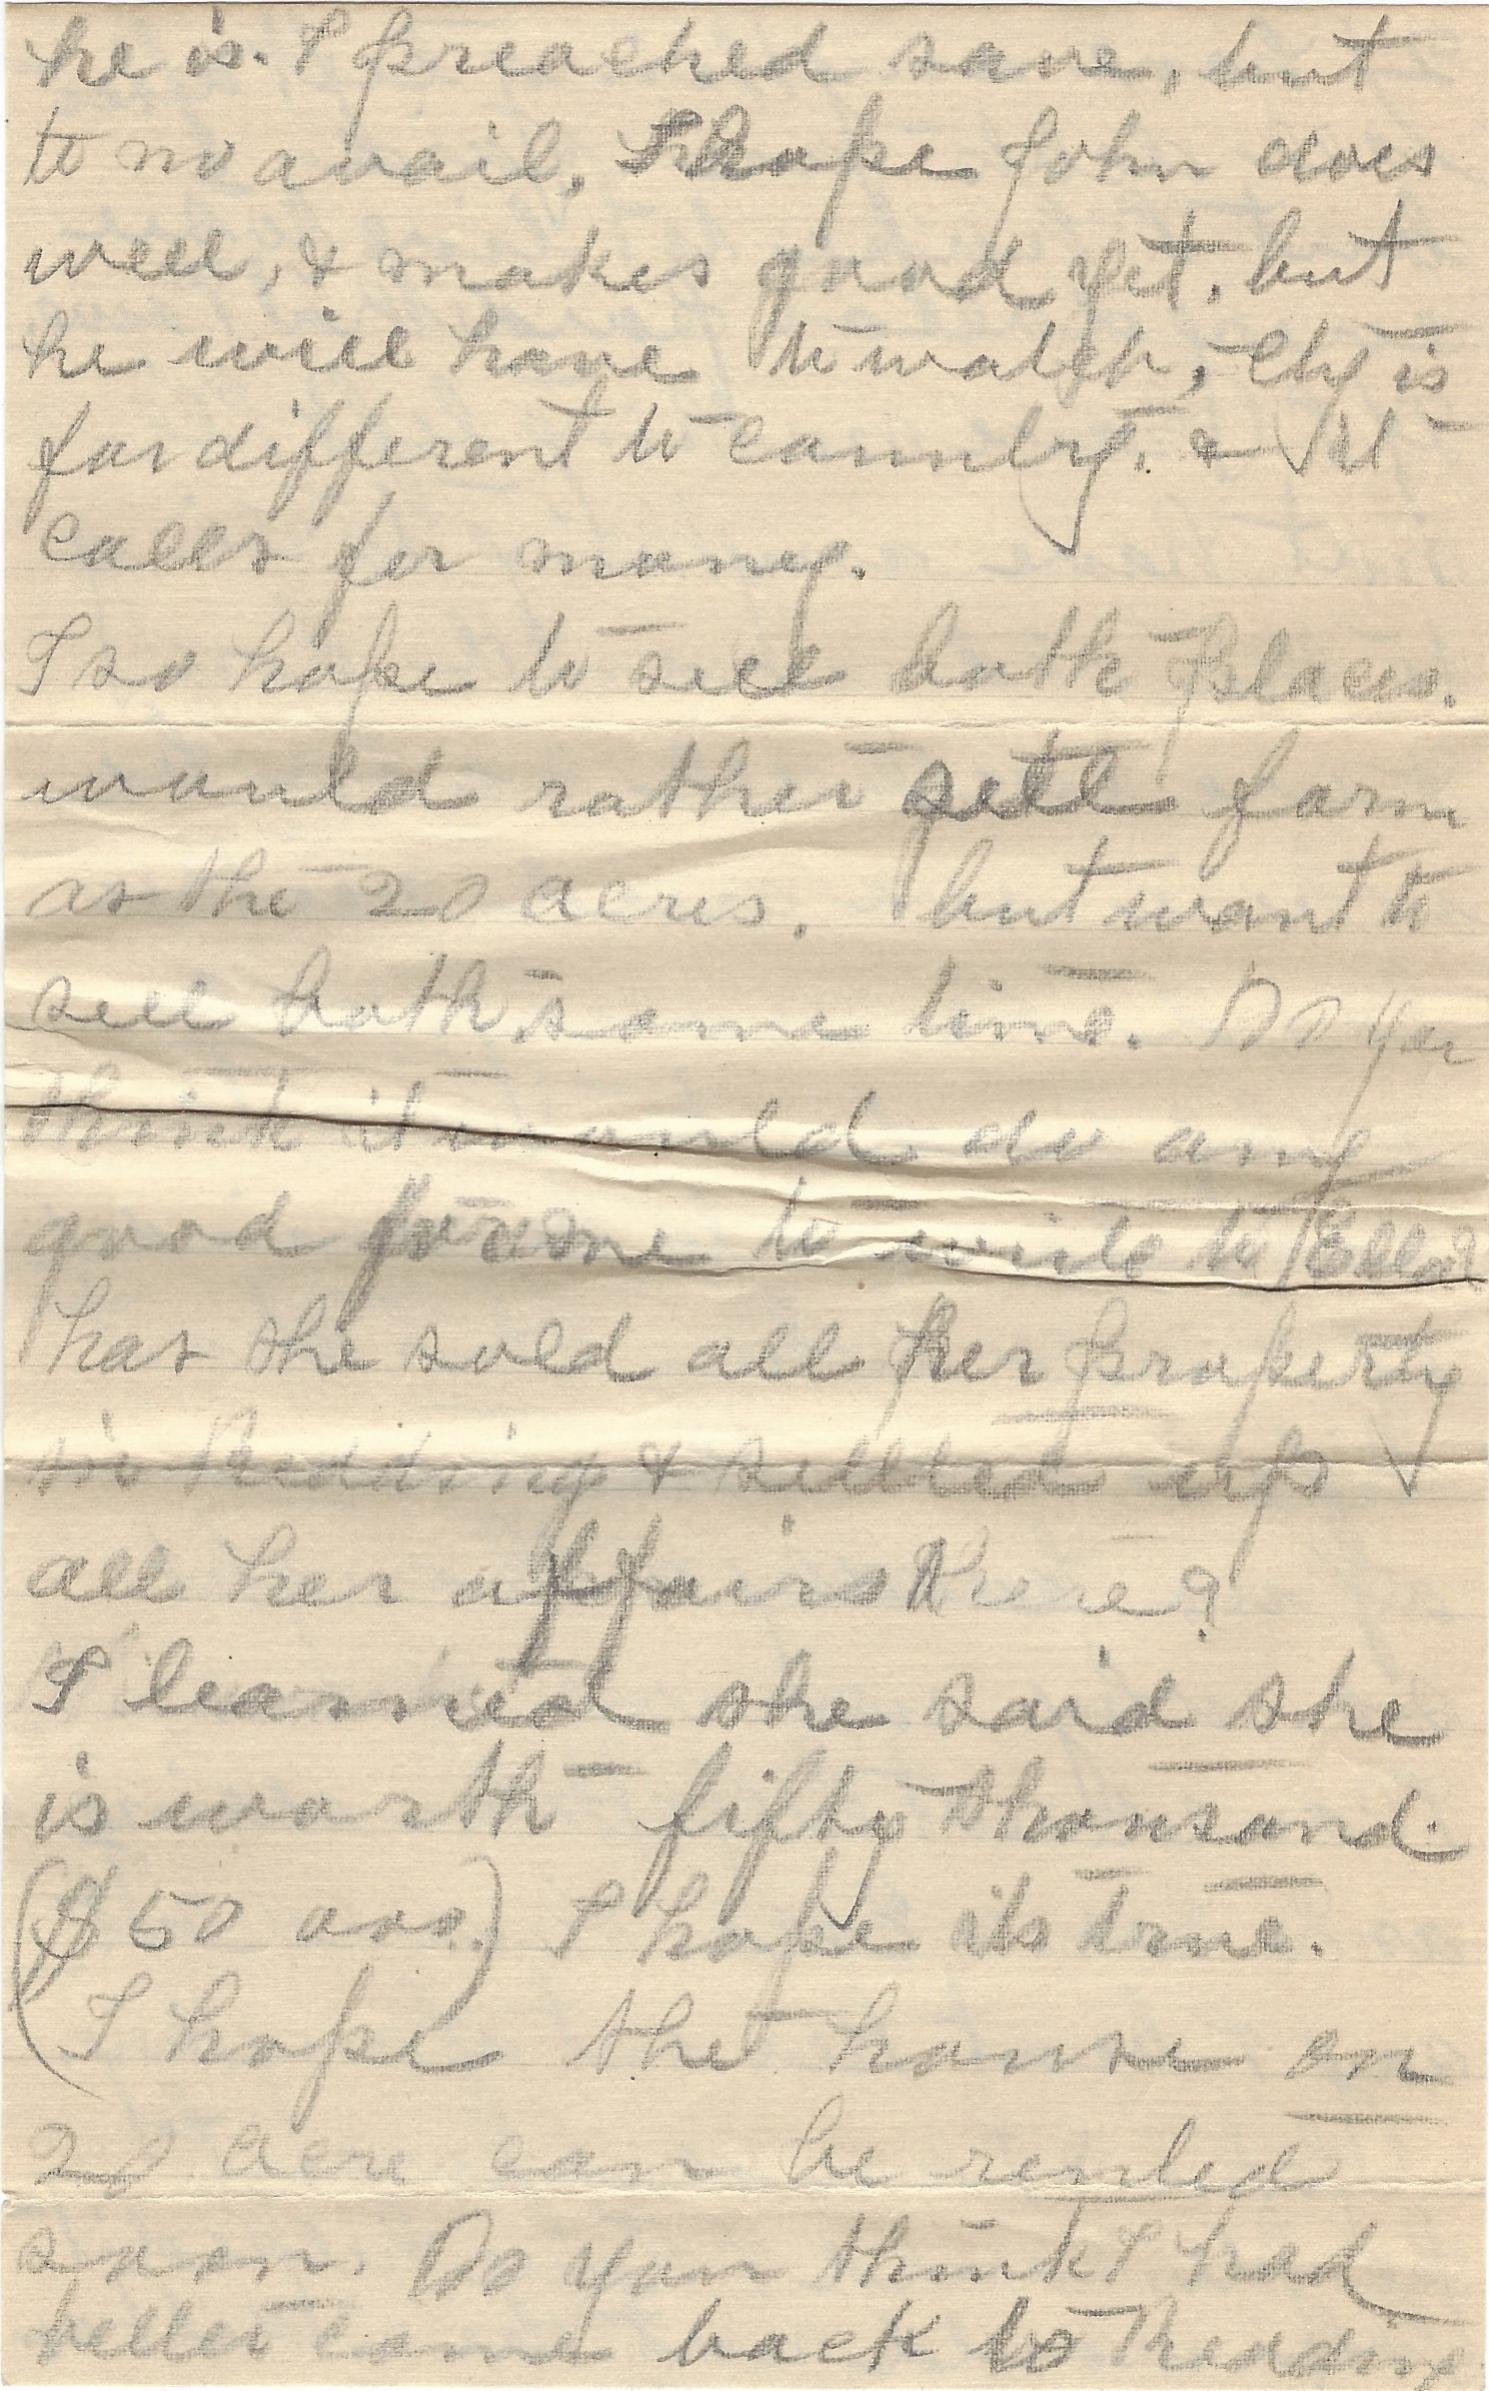 he is. I preached save, but
to no avail. I hope John does
well, & makes good yet, but
he will have to watch, City is
far different to country. & it
calls for money.
I so hope to sell both places.
would rather sell farm
as the 20 acres. but want to
sell both same time. Do you
think it would do any
good for me to write to Ella?
has she sold all her property
in Redding & settled up
all her affairs there?
I learned she said she
is worth fifty thousand.
($50 ooo.) I hope its true.
I hope the house on
20 acre can be rented
soon. Do you think I had
better come back to Redding